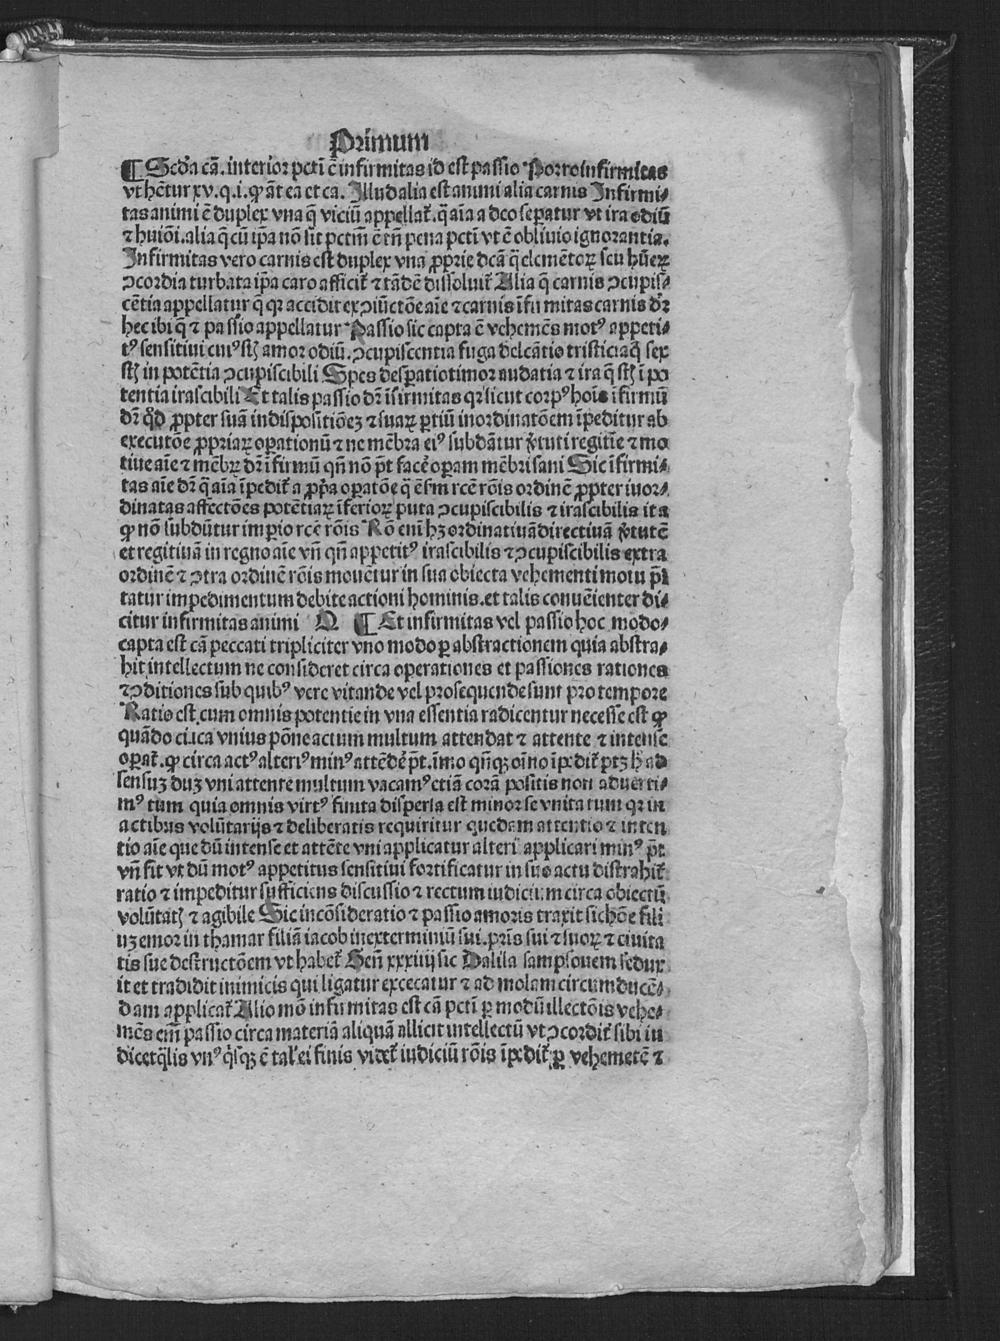 Primum
¶ Scḋa cā. interior pctī ē infirmitas id est passio Porro infirmitas
vt hētur xv. q. i. ꝙ āt ea et ca. Illud alia est animi alia carnis Infirmi⸗
tas animi ē duplex vna q̄ viciū appellat̄. q̄ aīa a deo seꝑatur vt ira odiū
⁊ huiōi. alia q̄ cū ip̄a nō sit pctm̄ ē tn̄ pena pctī vt ē obliuio ignorantia.
Infirmitas vero carnis est duplex vna ꝓprie dc̄a q̄ elemētoꝝ seu hūeꝝ
ↄcordia turbata ip̄a caro afficit̄ ⁊ tādē dissoluit̄ Alia q̄ carnis ↄcupis⸗
cētia appellatur q̄ qꝛ accidit ex ↄiūctōe aīe ⁊ carnis īfirmitas carnis dꝛ̄
hec ibi q̄ ⁊ passio appellatur Passio sic capta ē vehemēs motꝰ appeti⸗
tꝰ sensitiui cuiꝰ st̄ amor odiū. ↄcupiscentia fuga delcātio tristicia q̄ sex
st̄ in potētia ↄcupiscibili Spes desꝑatio timor audatia ⁊ ira q̄ st̄ ī po
tentia irascibili Et talis passio dꝛ̄ īfirmitas qꝛ sicut corpꝰ hoīs īfirmū
dꝛ̄ qḋ ꝓpter suā indispositiōeꝫ ⁊ suaꝝ ꝑtiū inordinatōem īpeditur ab
executōe ꝓpriaꝝ oꝑationū ⁊ ne mēbra eiꝰ subdātur v̄tuti regitīe ⁊ mo
tiue aīe ⁊ mēbꝝ dꝛ̄ īfirmū qn̄ nō p̄t facē oꝑam mēbri sani Sic īfirmi⸗
tas aīe dꝛ̄ q̄ aīa īpedit̄ a ꝓp̄a oꝑatōe q̄ ē sm̄ rcē rōis ordinē ꝓpter inor⸗
dinatas affectōes potētiaꝝ īferioꝝ puta ↄcupiscibilis ⁊ irascibilis ita
ꝙ nō subdūtur imꝑio rcē rōis Rō eni hꝫ ordinatiuā directiuā v̄tutē
et regitiuā in regno aīe vn̄ qn̄ appetitꝰ irascibilis ⁊ ↄcupiscibilis extra
ordinē ⁊ ↄtra ordinē rōis mouētur in sua obiecta vehementi motu p̄s
tatur impedimentum debite actioni hominis. et talis conuēienter di⸗
citur infirmitas animi N ¶ Et infirmitas vel passio hoc modo⸗
capta est cā peccati tripliciter vno modo ꝑ abstractionem quia abstra⸗
hit intellectum ne consideret circa operationes et passiones rationes
⁊ ↄditiones sub quibꝰ vere vitande vel prosequende sunt pro tempore
Ratio est cum omnis potentie in vna essentia radicentur necesse est ꝙ
quādo circa vnius pōne actum multum attendat ⁊ attente ⁊ intense
oꝑat̄. ꝙ circa actꝰ alteriꝰ minꝰ attēdē p̄t. īmo qn̄qꝫ oīno īpedit̄ ptꝫ h ad
sensuꝫ duꝫ vni attente multum vacamꝰ etiā corā positis non aduerti⸗
mꝰ tum quia omnis virtꝰ finita dispersa est minor se vnita tum qꝛ in
actibus volūtarijs ⁊ deliberatis requiritur quedam attentio ⁊ inten
tio aīe que dū intense et attēte vni applicatur alteri applicari minꝰ p̄t
vn̄ fit vt dū motꝰ appetitus sensitiui fortificatur in suo actu distrahit̄
ratio ⁊ impeditur sufficiens discussio ⁊ rectum iudicium circa obiectū
volūtatꝭ ⁊ agibile Sic incōsideratio ⁊ passio amoris traxit sichē fili
uꝫ emor in thamar filiā iacob in exterminiū sui. pr̄is sui ⁊ suoꝝ ⁊ ciuita
tis sue destructōem vt habet̄ Gen̄ xxxiiij sic Dalila sampsonem sedux
it et tradidit inimicis qui ligatur excecatur ⁊ ad molam circumducē⸗
dam applicat̄ Alio mō infirmitas est cā pctī ꝑ modū illectōis vehe⸗
mēs em̄ passio circa materiā aliquā allicit intellectū vt ↄcordit̄ sibi iu
dicet q̄lis vnꝰ q̄sqꝫ ē tal' ei finis videt̄ iudiciū rōis īpedit̄ ꝑ vehemetē ⁊